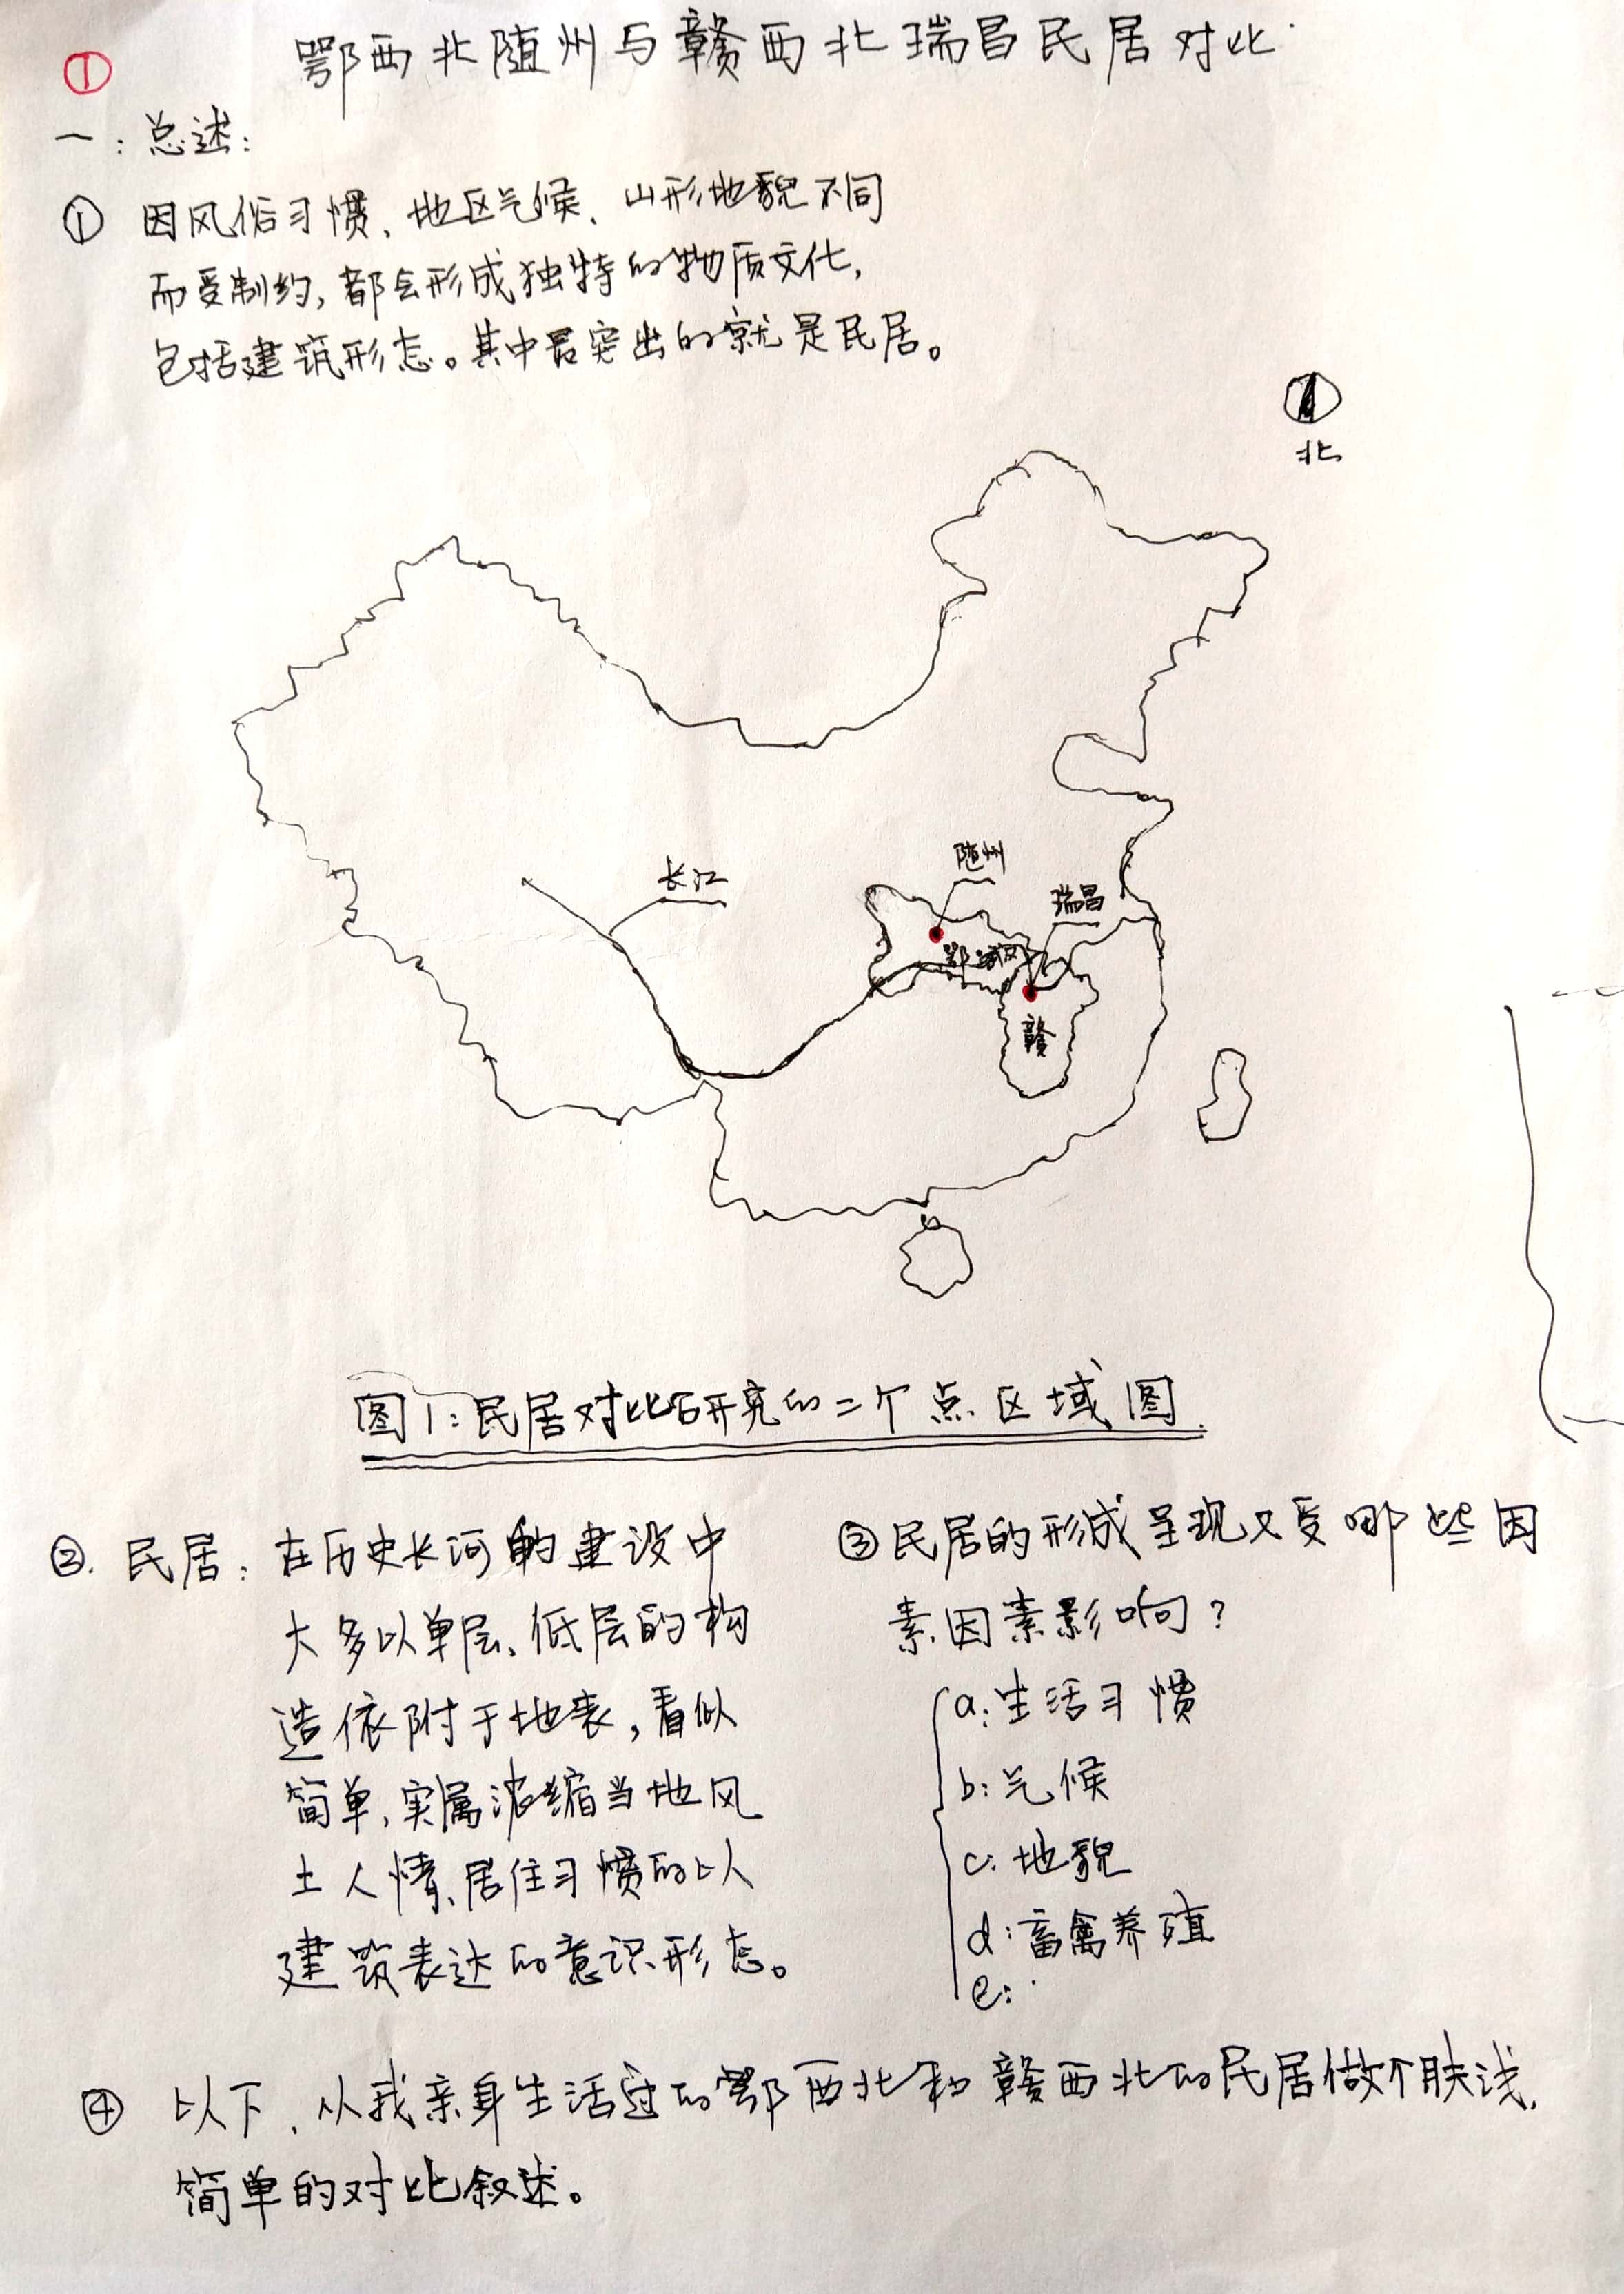 ①
鄂西北随州与赣西北瑞昌民居对比
一:总述:
① 因风俗习惯、地区气候、山形地貌不同
而受制约,都会形成独特的物质文化,
包括建筑形态。其中最突出的就是民居。
北
随州
长江
瑞昌
鄂
赣
图1:民居对比研究的二个点区域图.
②. 民居:在历史长河的建设中
大多以单层、低层的构
造依附于地表,看似
简单,实属浓缩当地风
土人情、居住习惯的以
建筑表达的意识形态。
③民居的形成呈现又受哪些因
素因素影响?
a:生活习惯
b:气候
c:地貌
d:畜禽养殖
e:
④ 以下,从我亲身生活过的鄂西北和赣西北的民居做个肤浅、
简单的对比叙述。